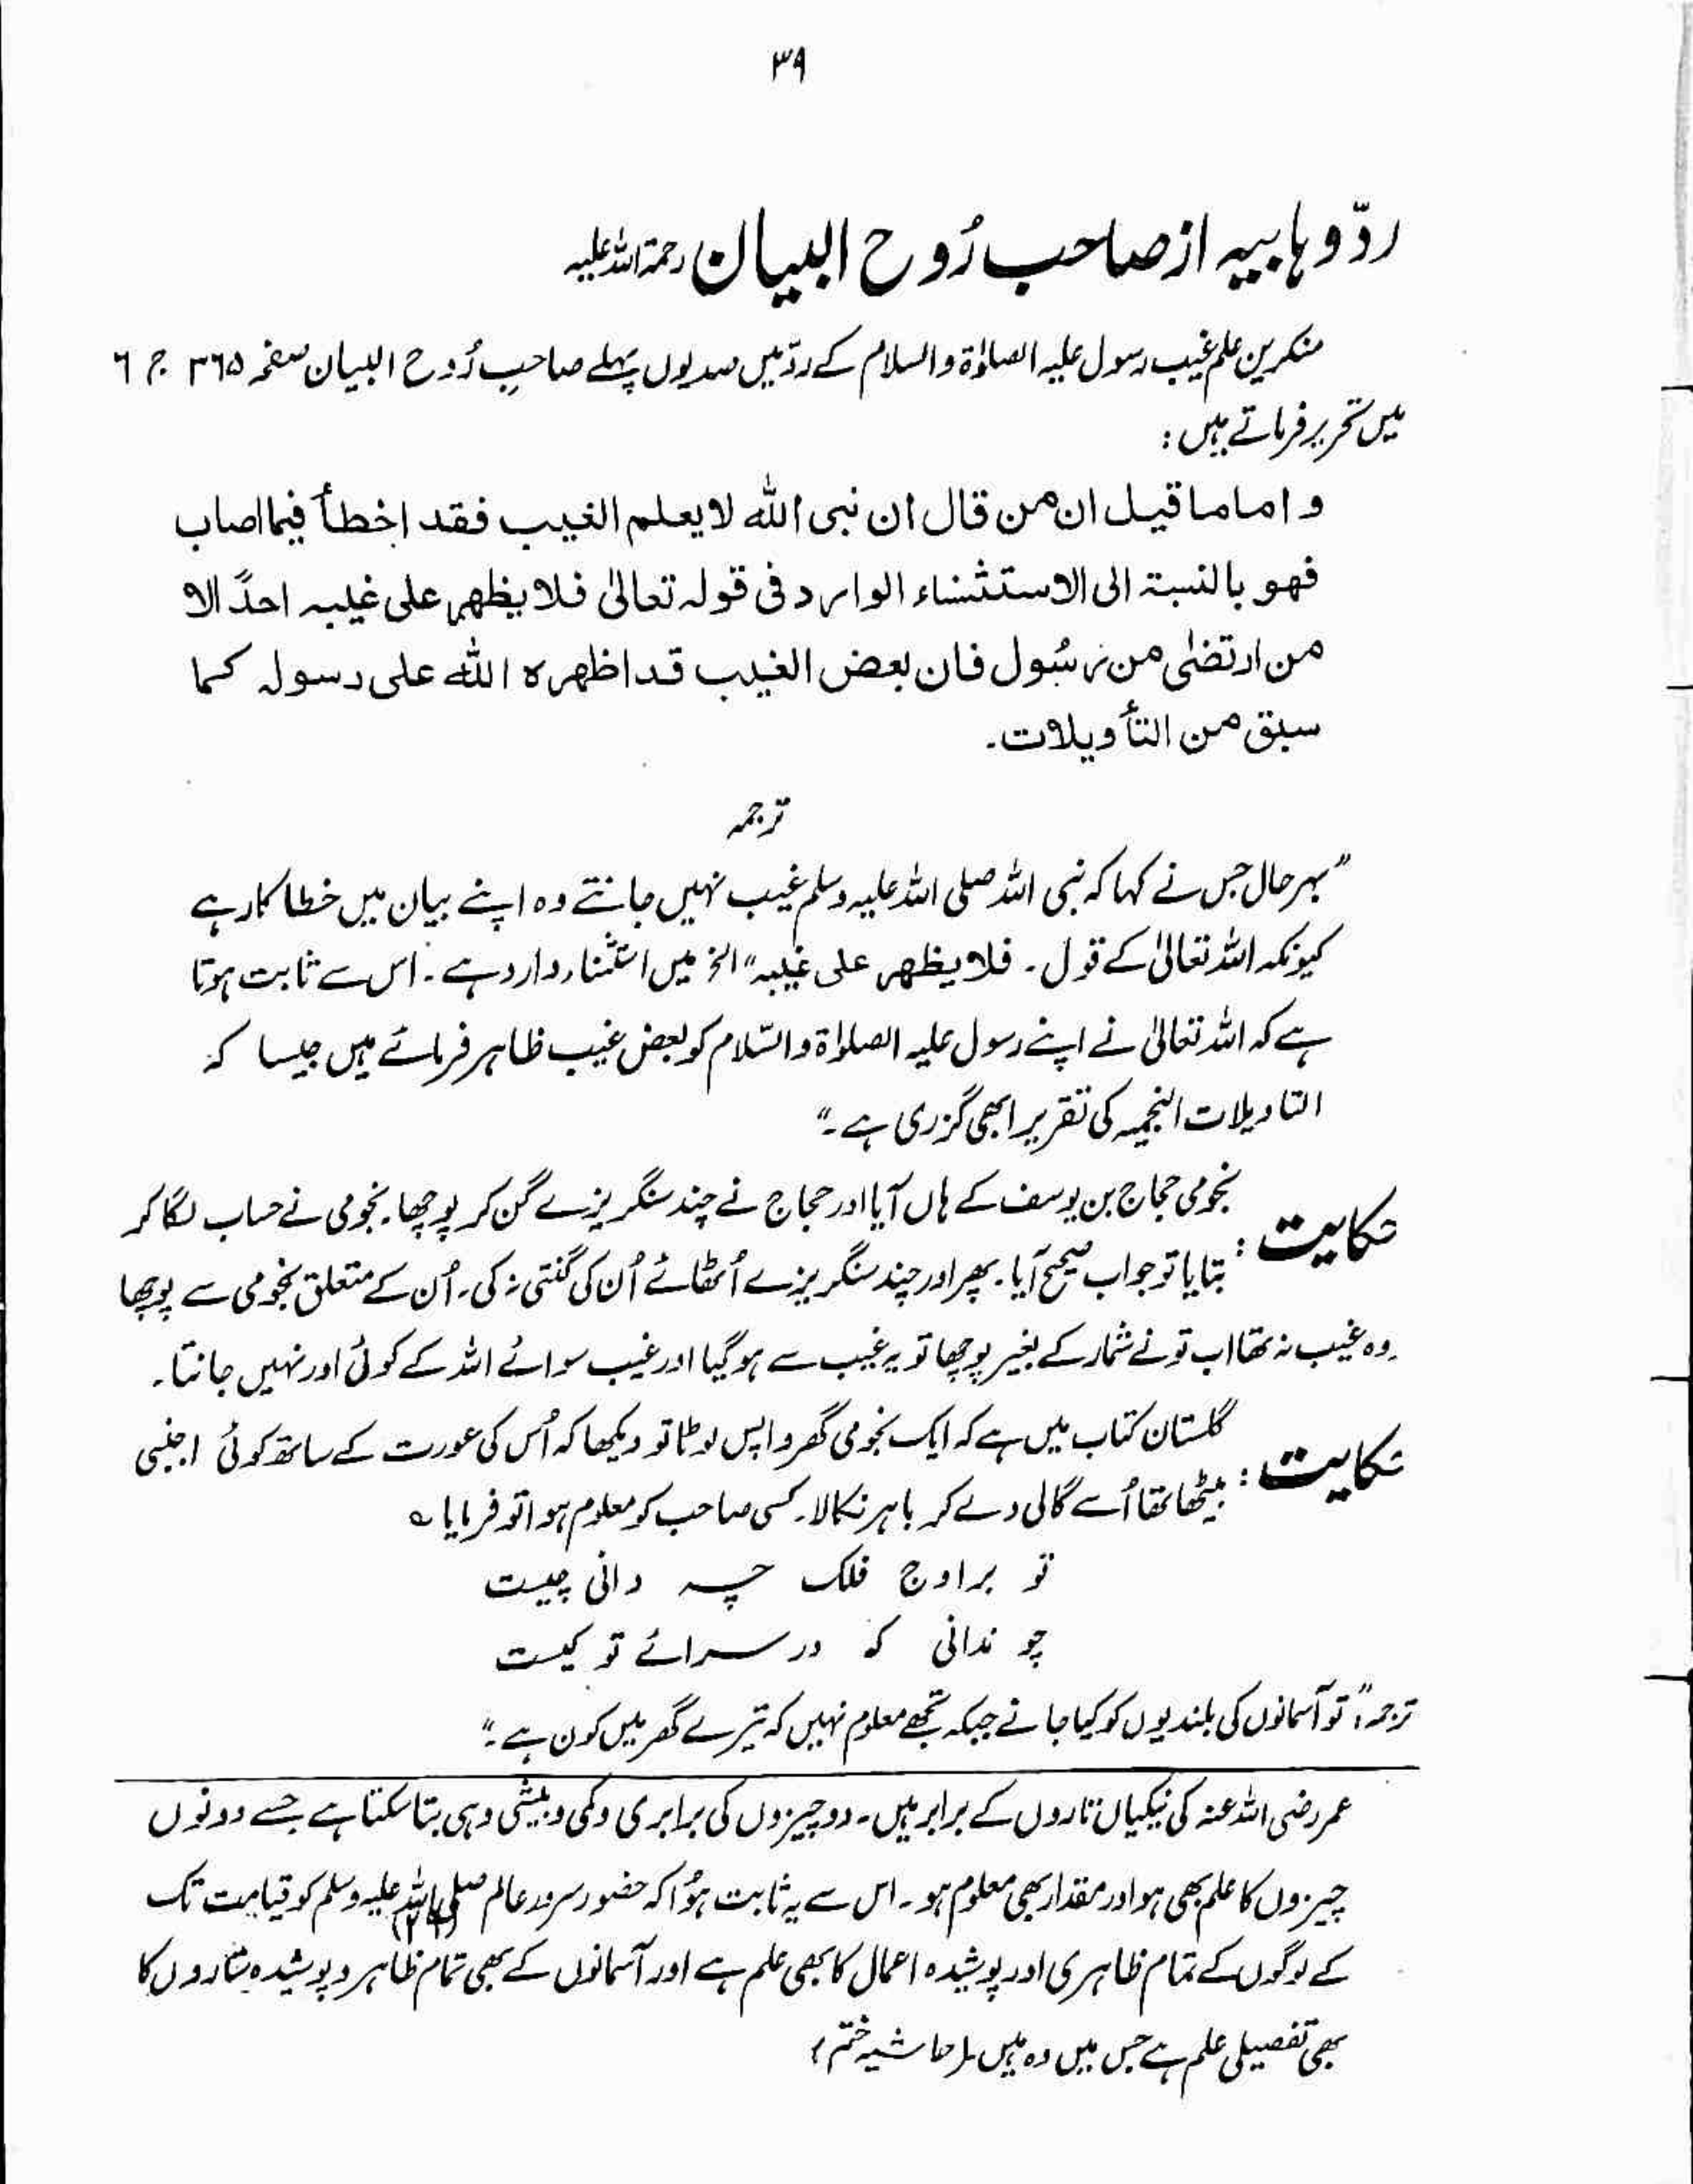 ۳۹
ردّ وہابیہ از صاحب رُوح البیان رحمۃ اللہ علیہ
منکرین علم غیب رسول علیہ الصلوٰۃ والسلام کے ردّ میں صدیوں پہلے صاحبِ رُوح البیان صفحہ ۳۶۵ ج ۶
میں تحریر فرماتے ہیں :
و اما ما قیل ان من قال ان نبی اللہ لا یعلم الغیب فقد اخطأ فیما اصاب
فھو بالنسبۃ الی الاستثناء الوارد فی قولہ تعالیٰ فلا یظھر علی غیبہ احدًا الا
من ارتضیٰ من رسُول فان بعض الغیب قد اظھرہ اللہ علی رسولہ کما
سبق من التأویلات۔
ترجمہ
”بہرحال جس نے کہا کہ نبی اللہ صلی اللہ علیہ وسلم غیب نہیں جانتے وہ اپنے بیان میں خطا کار ہے
کیونکہ اللہ تعالیٰ کے قول۔ فلا یظھر علی غیبہ“ الخ میں استثناء وارد ہے۔ اس سے ثابت ہوتا
ہے کہ اللہ تعالیٰ نے اپنے رسول علیہ الصلواۃ والسّلام کو بعض غیب ظاہر فرمائے ہیں جیسا کہ
التاویلات النجمیہ کی تقریر ابھی گزری ہے۔“
حکایت : نجومی حجاج بن یوسف کے ہاں آیا اور حجاج نے چند سنگریزے گن کر پوچھا۔ نجومی نے حساب لگا کر
بتایا تو جواب صحیح آیا۔ پھر اور چند سنگریزے اُٹھائے اُن کی گنتی نہ کی۔ اُن کے متعلق نجومی سے پوچھا
وہ غیب نہ تھا اب تو نے شمار کے بغیر پوچھا تو یہ غیب سے ہو گیا اور غیب سوائے اللہ کے کوئی اور نہیں جانتا۔
حکایت : گلستان کتاب میں ہے کہ ایک نجومی گھر واپس لوٹا تو دیکھا کہ اُس کی عورت کے ساتھ کوئی اجنبی
بیٹھا تھا اُسے گالی دے کر باہر نکالا۔ کسی صاحب کو معلوم ہوا تو فرمایا ؎
تو بر اوج فلک چہ دانی چیست
چو ندانی کہ در سرائے تو کیست
ترجمہ: ”تو آسمانوں کی بلندیوں کو کیا جانے جبکہ تجھے معلوم نہیں کہ تیرے گھر میں کون ہے۔“
عمر رضی اللہ عنہ کی نیکیاں تاروں کے برابر ہیں۔ دو چیزوں کی برابری و کمی و بیشی وہی بتا سکتا ہے جسے دونوں
چیزوں کا علم بھی ہو اور مقدار بھی معلوم ہو۔ اس سے یہ ثابت ہُوا کہ حضور سرور عالم صلی اللہ علیہ وسلم کو قیامت تک
کے لوگوں کے تمام ظاہری اور پوشیدہ اعمال کا بھی علم ہے اور آسمانوں کے بھی تمام ظاہر و پوشیدہ ستاروں کا
بھی تفصیلی علم ہے جس میں وہ ہیں۔ (حاشیہ ختم)